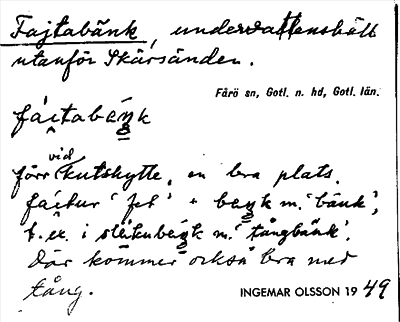 Fajtabänk, undervattenshäll
utanför Skärsänden.
Fårö sn, Gotl. n. hd, Gotl. län.
fáitabeŋk
förr vid kutskytte, en bra plats.
faitur 'fet' + beŋk m. 'bänk',
t. ex. i sleikubeŋk m. 'tångbänk'.
Där kommer också bra med
tång.
INGEMAR OLSSON 1949